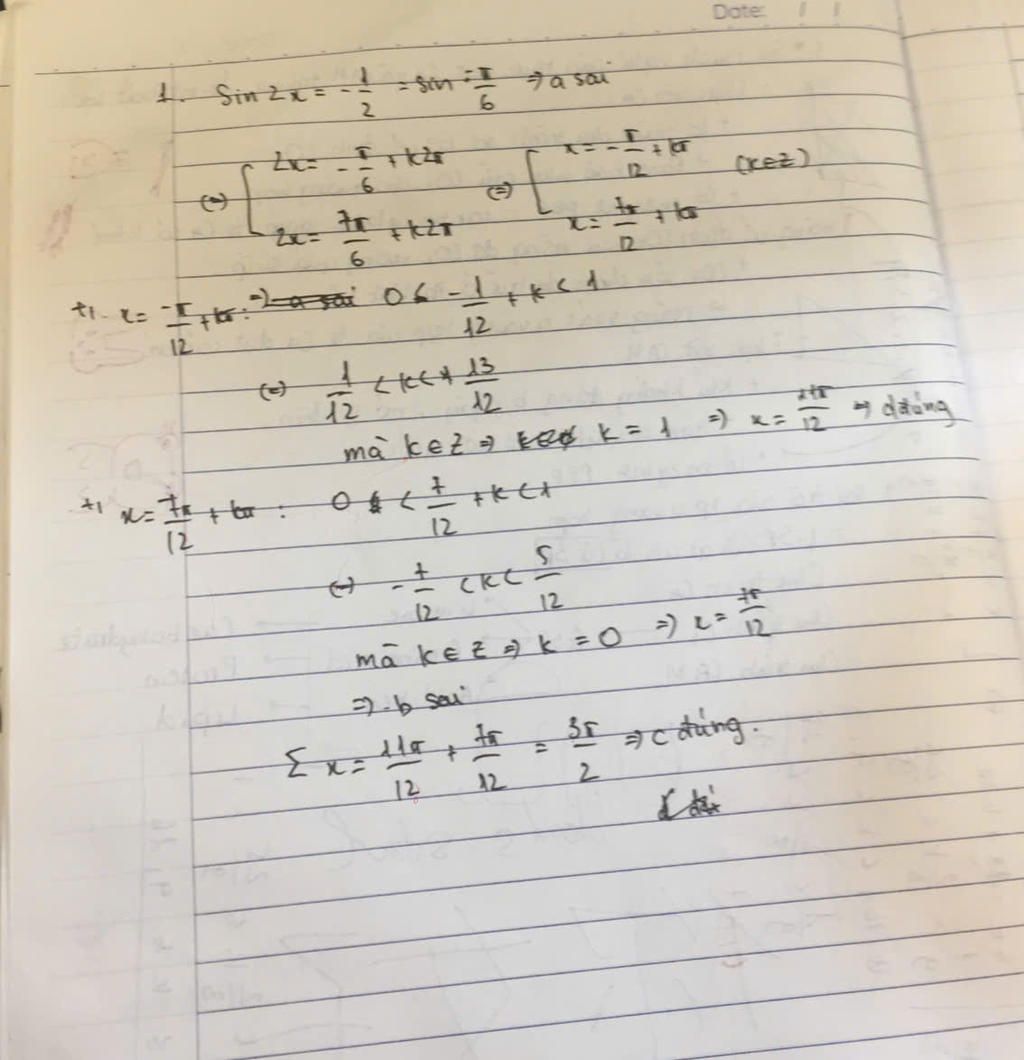 Date: / /
1. Sin 2x = -1/2 = sin -π/6 => a sai
(=) [ 2x = -π/6 + k2π (=) [ x = -π/12 + kπ (k∈Z)
2x = 7π/6 + k2π x = 7π/12 + kπ
+) x = -π/12 + kπ: => a sai 0 < -1/12 + k < 1
(=) 1/12 < k < 13/12
mà k∈Z => k = 1 => x = 11π/12 => d đúng
+) x = 7π/12 + kπ : 0 < 7/12 + k < 1
(=) -7/12 < k < 5/12
mà k∈Z => k = 0 => x = 7π/12
=> b sai
Σ x = 11π/12 + 7π/12 = 3π/2 => c đúng.